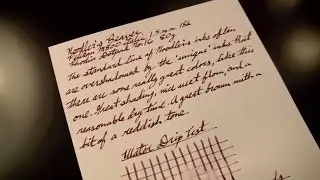 Noodler's Beaver
Pelikan M800 Italic 1.5mm
Rhodia Dotpad No. 16 80g
The standard line of Noodler's inks often
are overshadowed by the "unique" inks. But
there are some really great colors, like this
one. Great shading, nice wet flow, and a
reasonable dry time. A great brown with a
bit of a reddish tone.
Water Drip Test